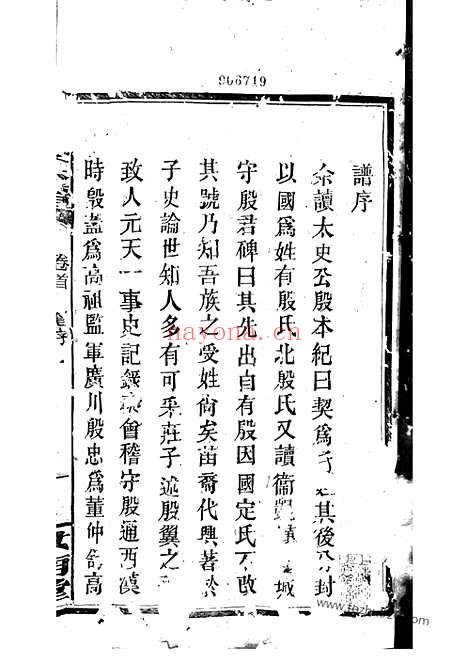 906719
譜序
余讀太史公殷本紀曰契爲子姓其後分封
以國爲姓有殷氏北殷氏又讀衞 城
守殷君碑曰其先出自有殷因國定氏不改
其號乃知吾族之受姓尙矣苗裔代興著於
子史論世知人多有可采莊子述殷翼之
致人元天一事史記 會稽守殷通西漢
時殷蓋爲高祖監軍廣川殷忠爲董仲舒高
卷首
nayona.cn